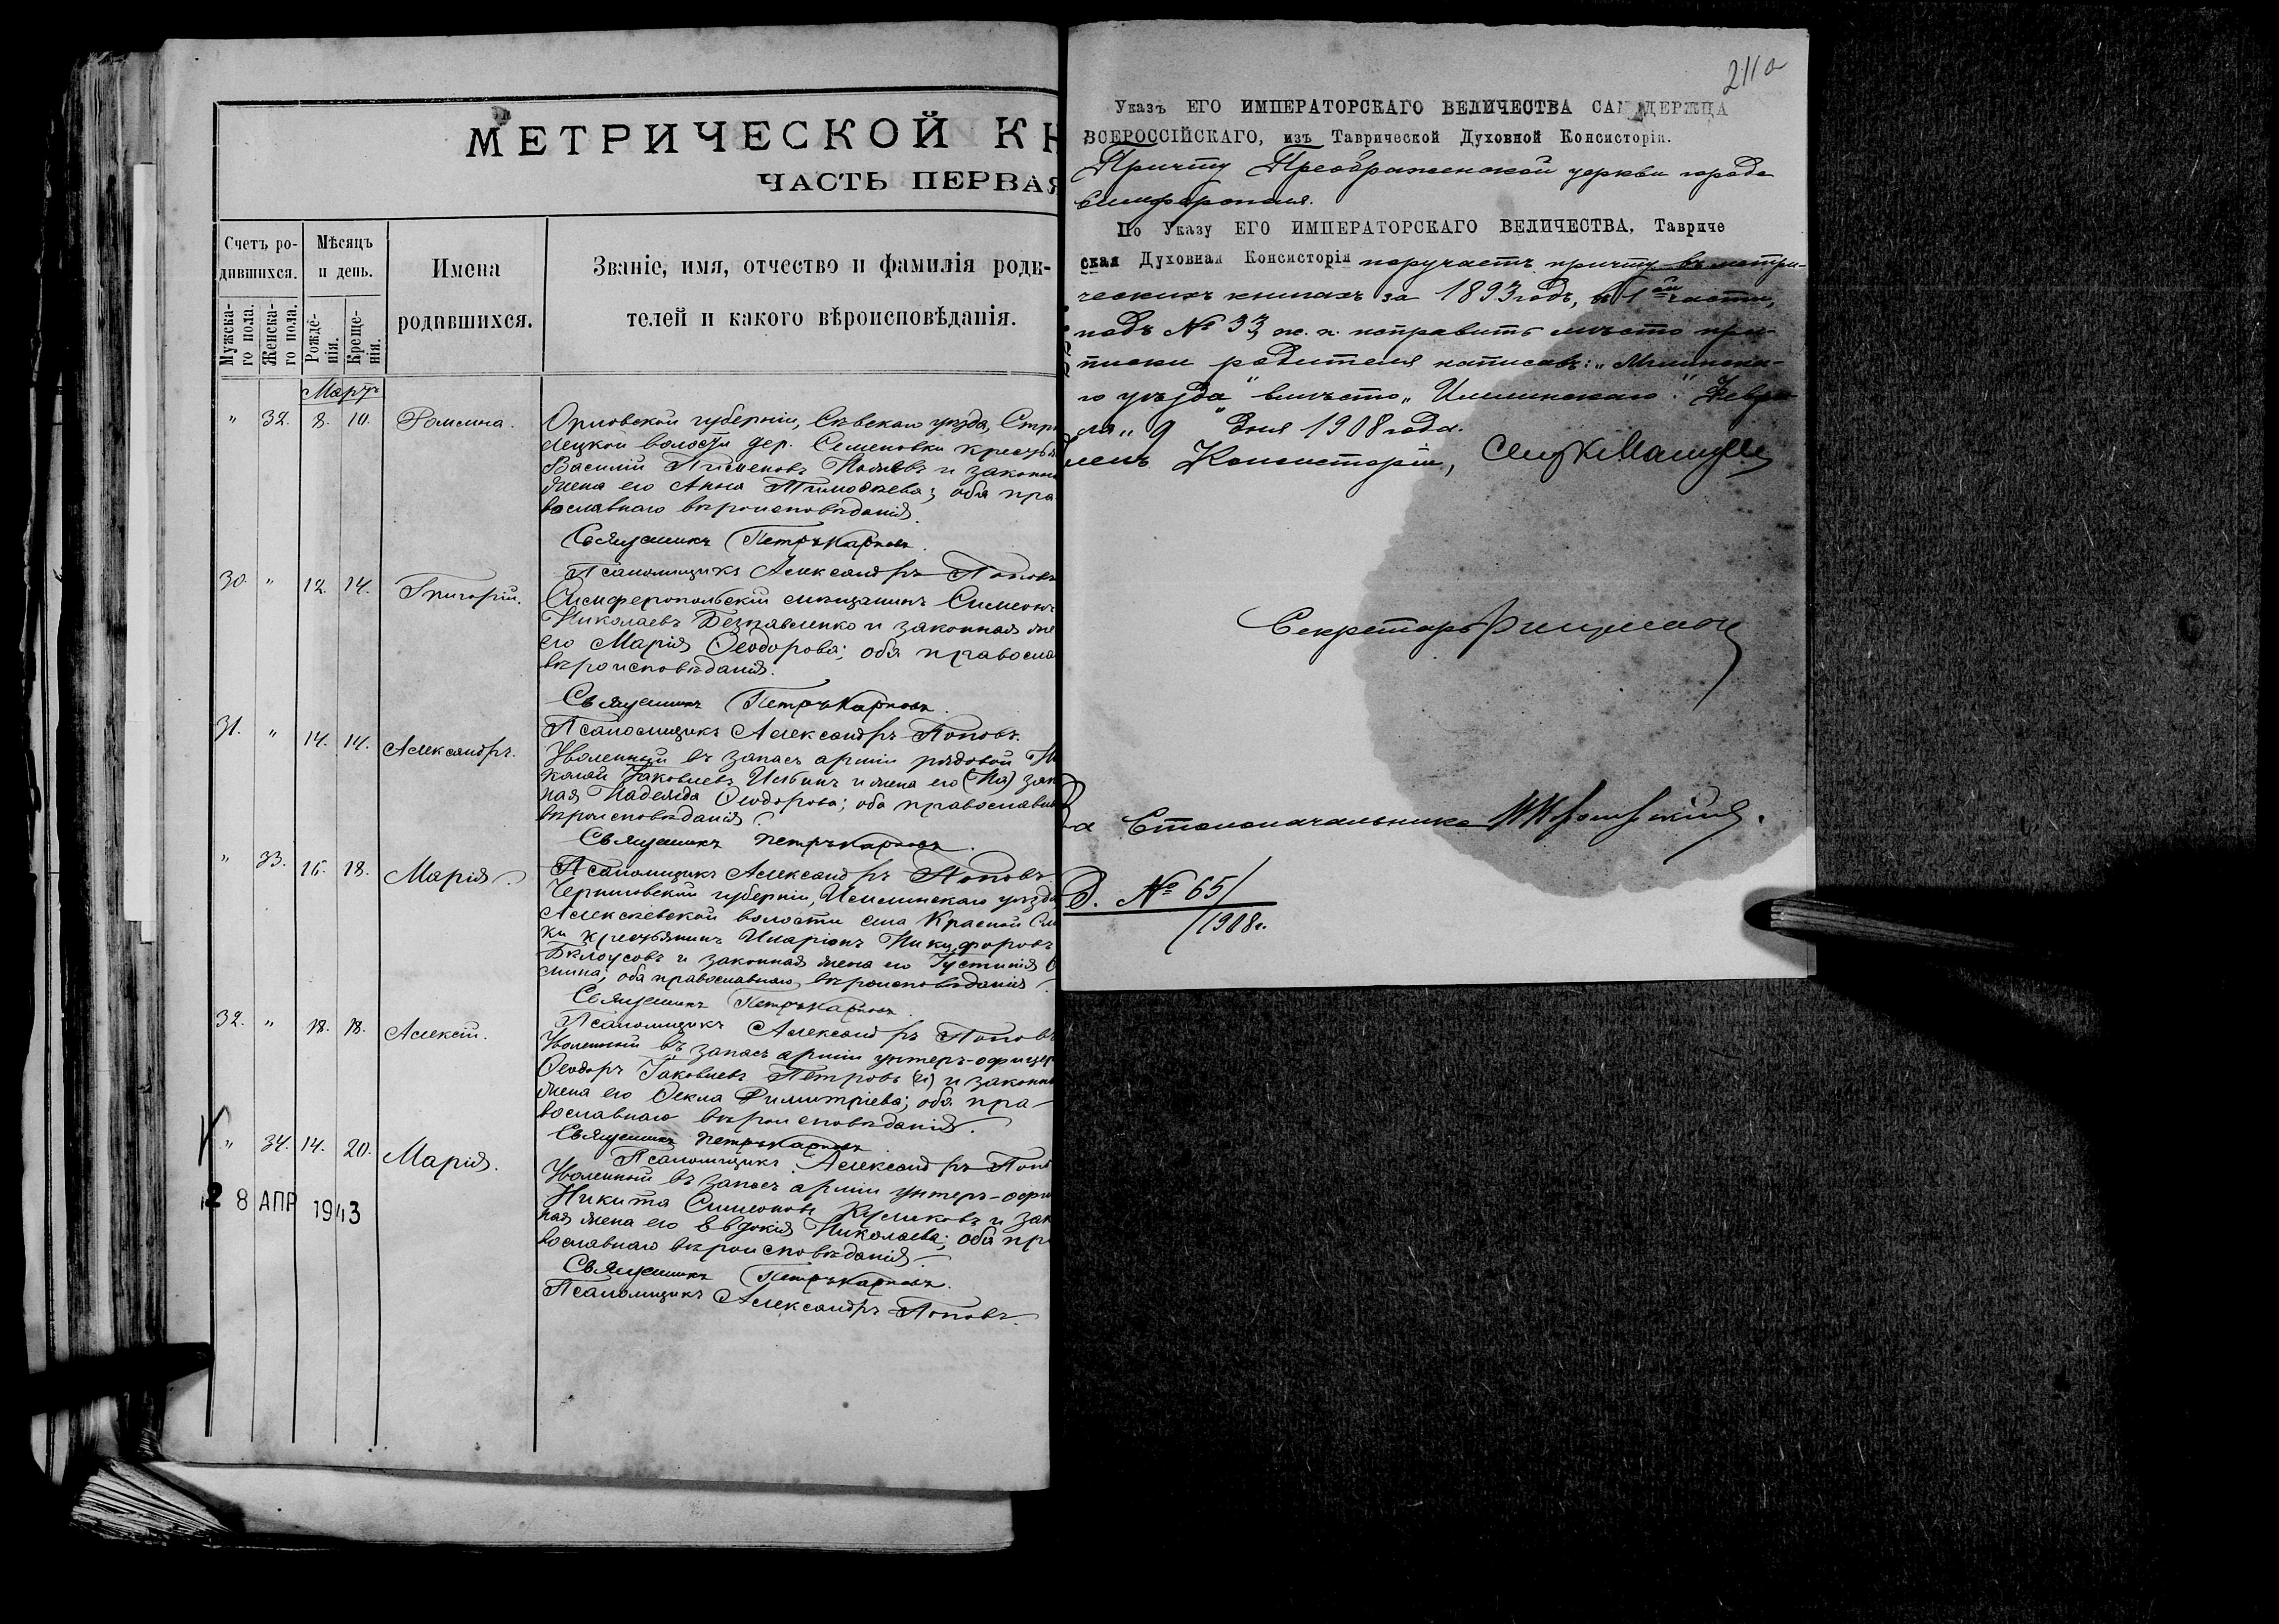 МЕТРИЧЕСКОЙ КН
ЧАСТЬ ПЕРВАЯ
Счетъ ро-
дившихся.
Мѣсяцъ
и день.
Имена
родившихся.
Званіе, имя, отчество и фамилія роди-
телей и какого вѣроисповѣданія.
Мужска-
го пола.
Женска-
го пола.
Рожде-
нія.
Креще-
нія.
Мартъ
" 32. 8. 10.
Орловской губерніи, Сѣвскаго уѣзда, Стрѣ
лецкой волости дер. Семеновки крестья
Василій Пименовъ и законна
жена его Анна Тимофеева; оба пра
вославнаго вѣроисповѣданія.
Священникъ Петръ Карповъ.
Псаломщикъ Александръ Поповъ
30. " 12. 14. Григорій.
Симферопольскій мѣщанинъ Симеонъ
Николаевъ Безпавленко и законная же
его Марія Ѳеодорова; оба правосла
вѣроисповѣданія.
Священникъ Петръ Карповъ.
Псаломщикъ Александръ Поповъ.
31. " 14. 14. Александръ.
Уволенный въ запасъ арміи рядовой Ни
колай Іаковлевъ Ильинъ и жена его (На) зак
ная Надежда Ѳеодорова; оба православн
вѣроисповѣданія.
Священникъ Петръ Карповъ.
Псаломщикъ Александръ Поповъ.
" 33. 16. 18. Марія.
Черниговской губерніи, Ишминскаго уѣзда
Алексѣевской волости села Красной
ки крестьянинъ Иларіонъ Никифоровъ
Бѣлоусовъ и законная жена его Іустинія
мина; оба православнаго вѣроисповѣданія.
Священникъ Петръ Карповъ.
Псаломщикъ Александръ Поповъ
32. " 18. 18. Алексій.
Уволенный въ запасъ арміи унтеръ-офицер
Ѳеодоръ Іаковлевъ Петровъ (и) и законна
жена его Ѳекла Димитріева; оба пра-
вославнаго вѣроисповѣданія.
Священникъ Петръ Карповъ
Псаломщикъ Александръ Попо
" 34. 14. 20. Марія.
Уволенный въ запасъ арміи унтеръ-офи
Никита Симеоновъ Куликовъ и зак
ная жена его Евдокія Николаева; оба пра
вославнаго вѣроисповѣданія.
Священникъ Петръ Карповъ.
Псаломщикъ Александръ Поповъ.
28 АПР 1943
211а
Указъ ЕГО ИМПЕРАТОРСКАГО ВЕЛИЧЕСТВА САМОДЕРЖЦА
ВСЕРОССІЙСКАГО, изъ Таврической Духовной Консисторіи.
Причту Преображенской церкви города
Симферополя.
По Указу ЕГО ИМПЕРАТОРСКАГО ВЕЛИЧЕСТВА, Тавриче
ская Духовная Консисторія поручаетъ причту въ метри-
ческихъ книгахъ за 1893 годъ, въ 1ой части,
подъ № 33 ж. п. исправить мѣсто при-
писки родителя написавъ: "Мглинска-
го уѣзда" вмѣсто "Ишминскаго". Февра
ля "9" дня 1908 года.
Членъ Консисторіи,
Секретарь
За Столоначальника
Д. № 65/
1908 г.